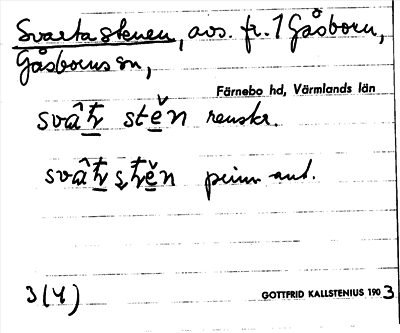 Svarta stenen, avs. fr. 1 Gåsborn,
Gåsborns sn,
Färnebo hd, Värmlands län
renskr.
prim. ant.
3(4)
GOTTFRID KALLSTENIUS 1903